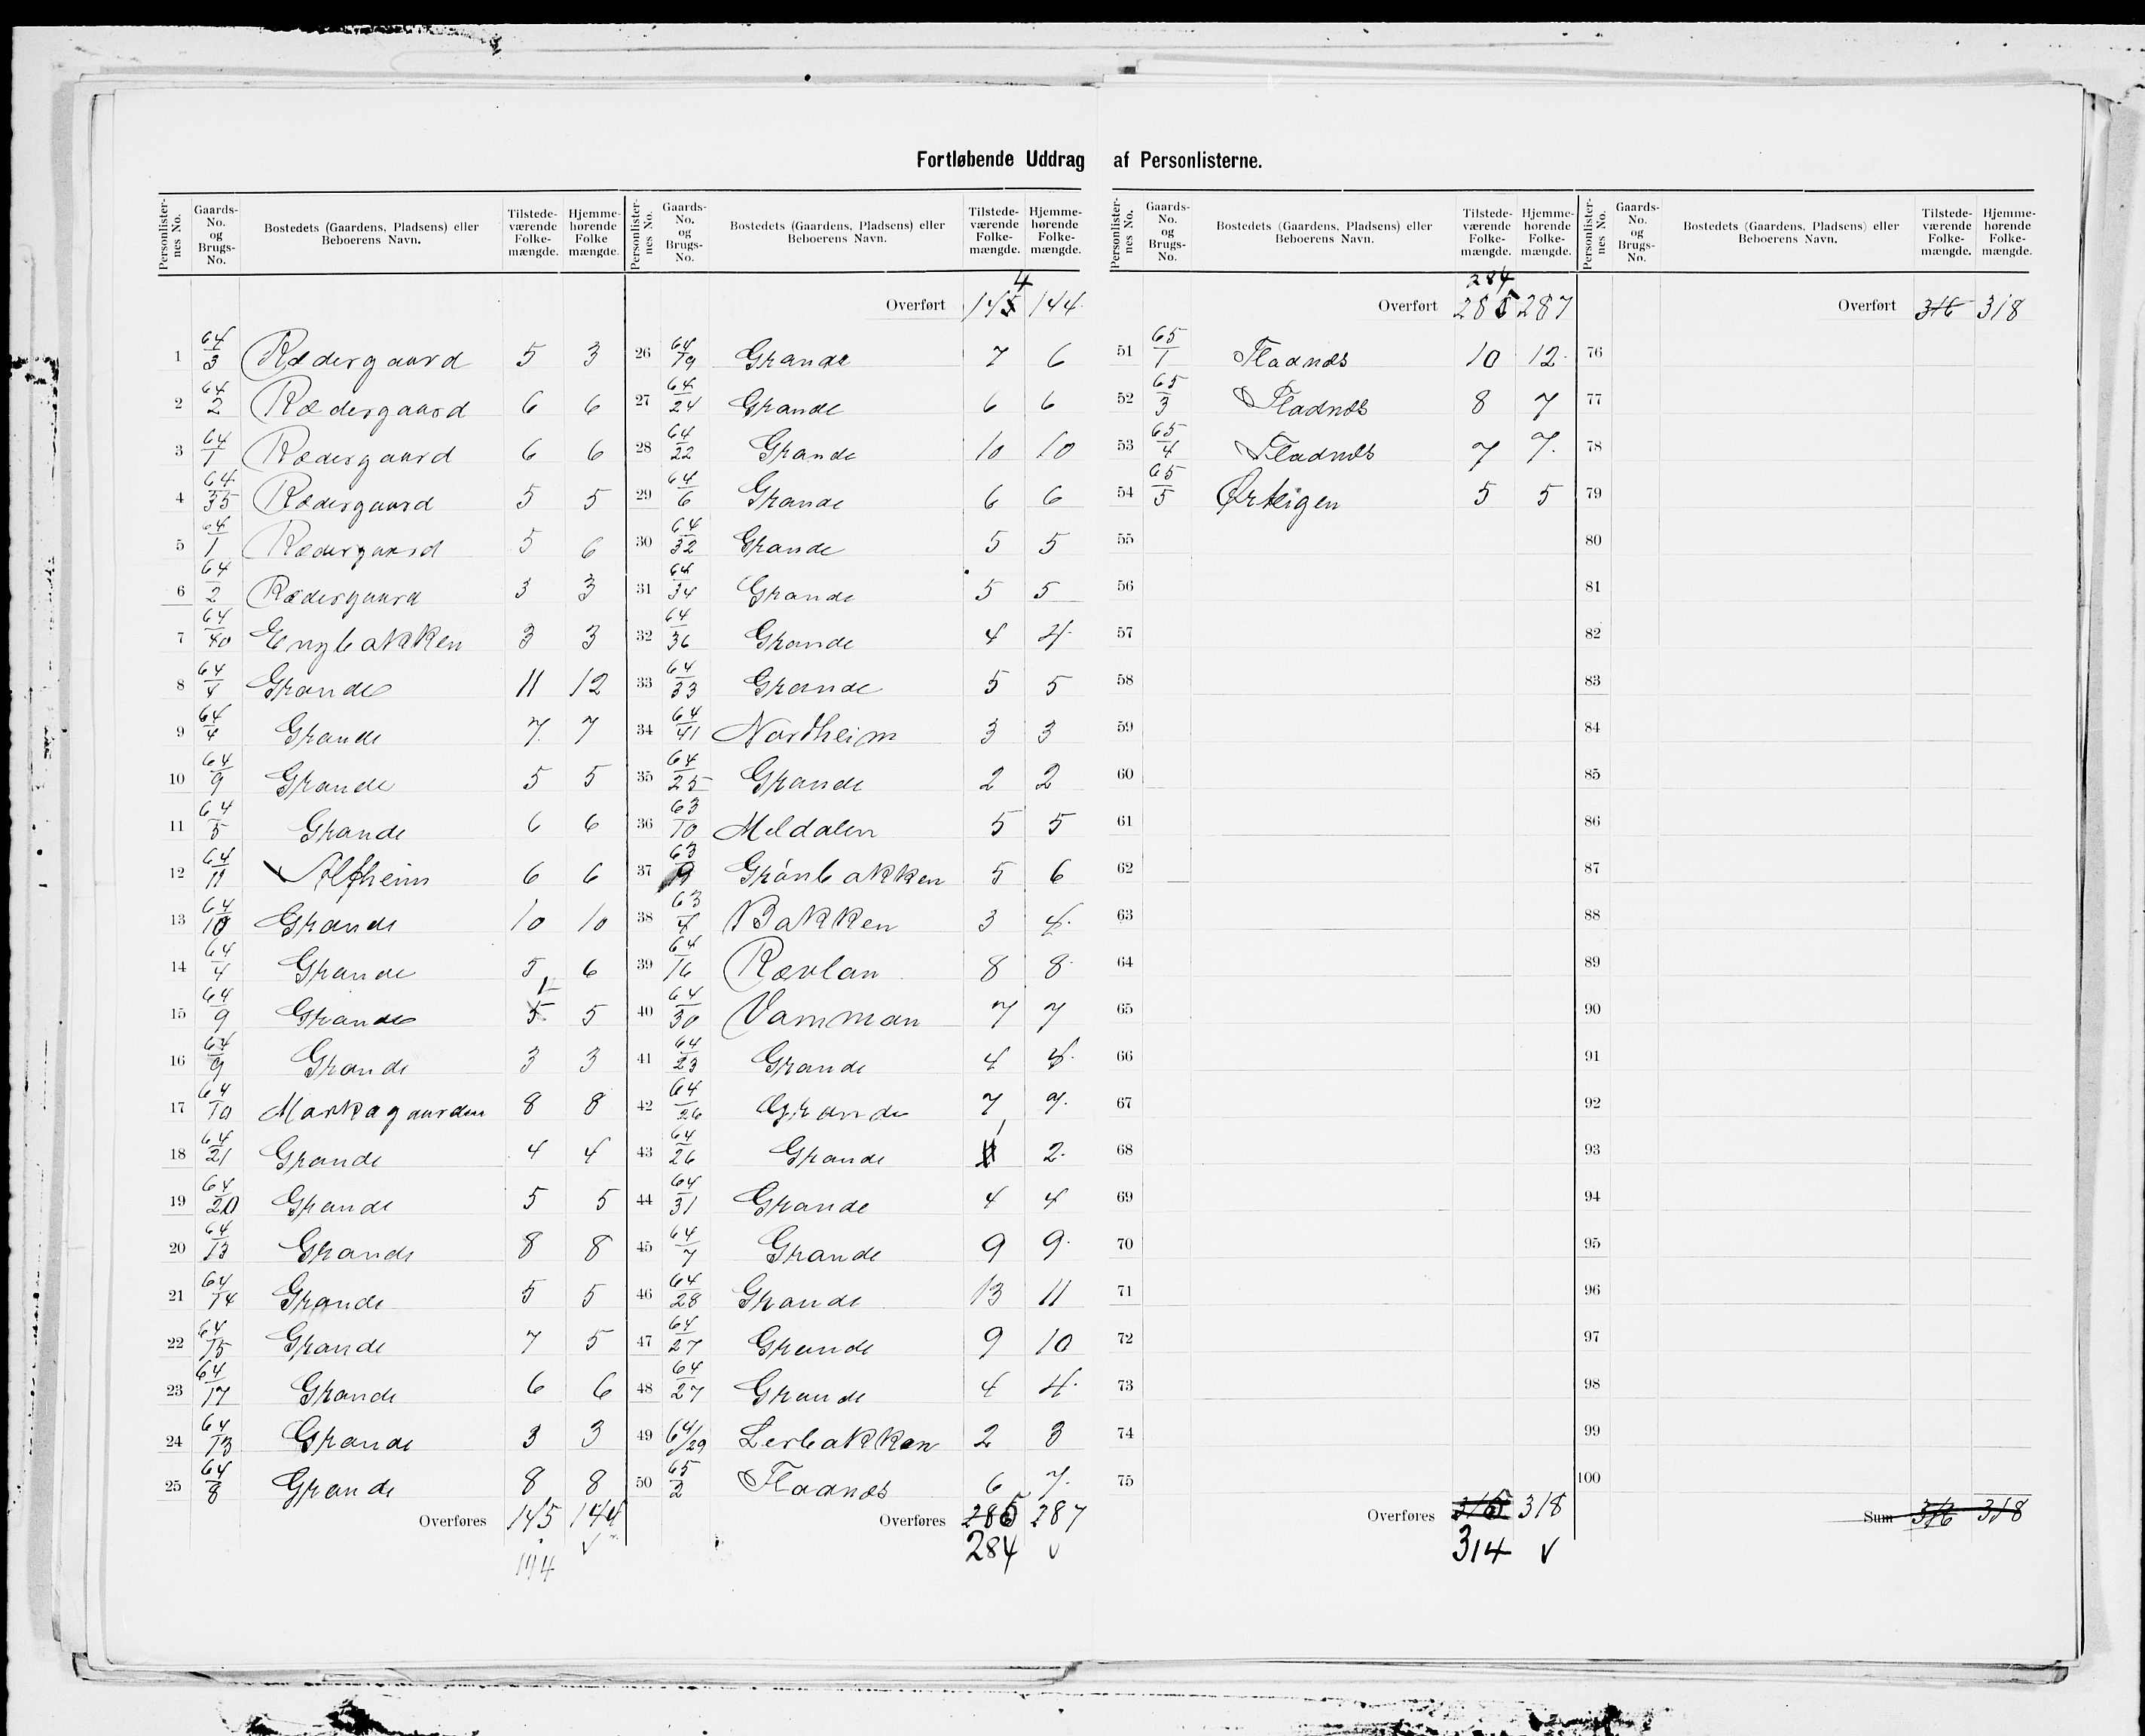 Fortløbende Uddrag af Personlisterne.
Personlisternes No. | Gaards-No. og Brugs-No. | Bostedets (Gaardens, Pladsens) eller Beboerens Navn. | Tilstedeværende Folkemængde. | Hjemmehørende Folkemængde.
1 64/3 Rædergaard 5 3
2 64/2 Rædergaard 6 6
3 64/1 Rædergaard 6 6
4 64/35 Rædergaard 5 5
5 64/1 Rædergaard 5 6
6 64/2 Rædergaard 3 3
7 64/40 Engbakken 3 3
8 64/4 Grande 11 12
9 64/4 Grande 7 7
10 64/9 Grande 5 5
11 64/5 Grande 6 6
12 64/11 Alfheim 6 6
13 64/10 Grande 10 10
14 64/4 Grande 5 6
15 64/9 Grande 5 5
16 64/9 Grande 3 3
17 64/10 Markagaarden 8 8
18 64/21 Grande 4 4
19 64/20 Grande 5 5
20 64/13 Grande 8 8
21 64/14 Grande 5 5
22 64/15 Grande 7 5
23 64/17 Grande 6 6
24 64/13 Grande 3 3
25 64/8 Grande 8 8
Overføres 145 144
144
Personlisternes No. | Gaards-No. og Brugs-No. | Bostedets (Gaardens, Pladsens) eller Beboerens Navn. | Tilstedeværende Folkemængde. | Hjemmehørende Folkemængde.
4
Overført 145 144
26 64/19 Grande 7 6
27 64/24 Grande 6 6
28 64/22 Grande 10 10
29 64/6 Grande 6 6
30 64/32 Grande 5 5
31 64/34 Grande 5 5
32 64/36 Grande 4 4
33 64/33 Grande 5 5
34 64/41 Nordheim 3 3
35 64/25 Grande 2 2
36 63/10 Meldalen 5 5
37 63/9 Grønbakken 5 6
38 63/4 Bakken 3 4
39 64/16 Rævlan 8 8
40 64/30 Vamman 7 7
41 64/23 Grande 4 4
42 64/26 Grande 7 7
43 64/26 Grande 1 2
44 64/31 Grande 4 4
45 64/7 Grande 9 9
46 64/28 Grande 13 11
47 64/27 Grande 9 10
48 64/27 Grande 4 4
49 64/29 Lerbakken 2 3
50 65/2 Fladnæs 6 7
Overføres 285 287
284
Personlisternes No. | Gaards-No. og Brugs-No. | Bostedets (Gaardens, Pladsens) eller Beboerens Navn. | Tilstedeværende Folkemængde. | Hjemmehørende Folkemængde.
284
Overført 285 287
51 65/1 Fladnæs 10 12
52 65/3 Fladnæs 8 7
53 65/4 Fladnæs 7 7
54 65/5 Ørteigen 5 5
55
56
57
58
59
60
61
62
63
64
65
66
67
68
69
70
71
72
73
74
75
Overføres 315 318
314
Personlisternes No. | Gaards-No. og Brugs-No. | Bostedets (Gaardens, Pladsens) eller Beboerens Navn. | Tilstedeværende Folkemængde. | Hjemmehørende Folkemængde.
Overført 316 318
76
77
78
79
80
81
82
83
84
85
86
87
88
89
90
91
92
93
94
95
96
97
98
99
100
Sum 316 318